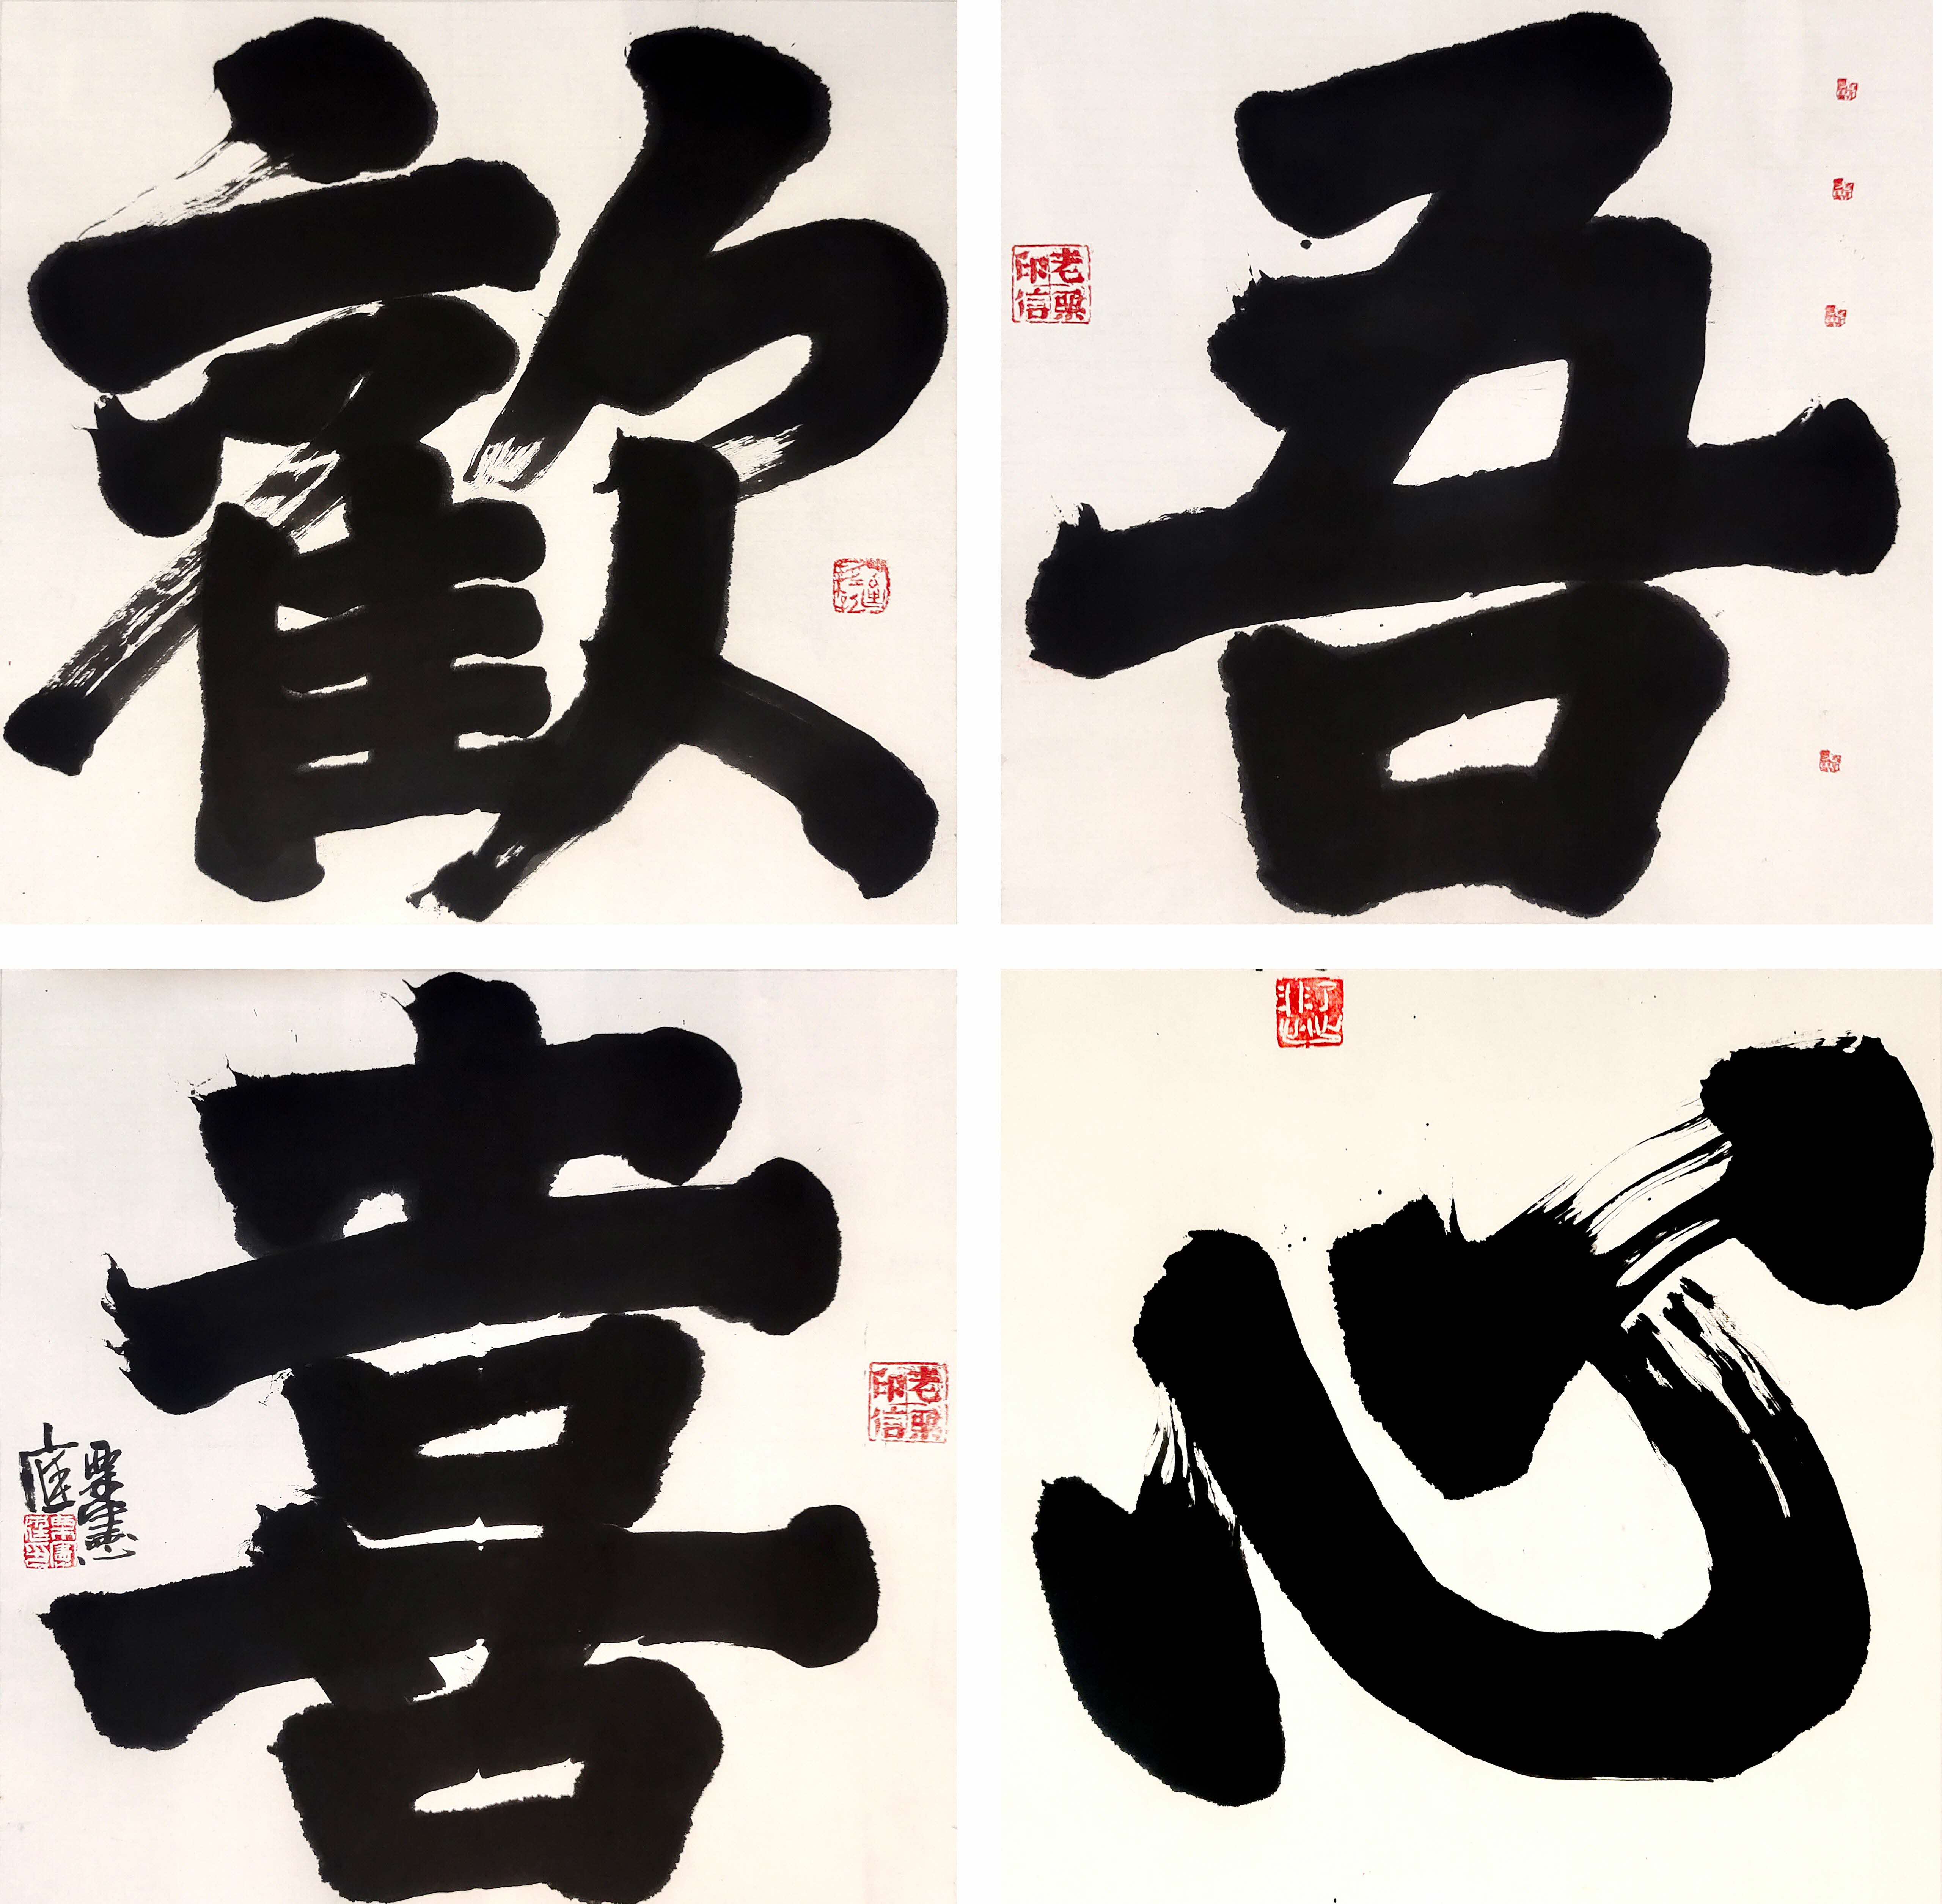 吾
老栗印信
心
歡
喜
老栗印信
栗憲庭